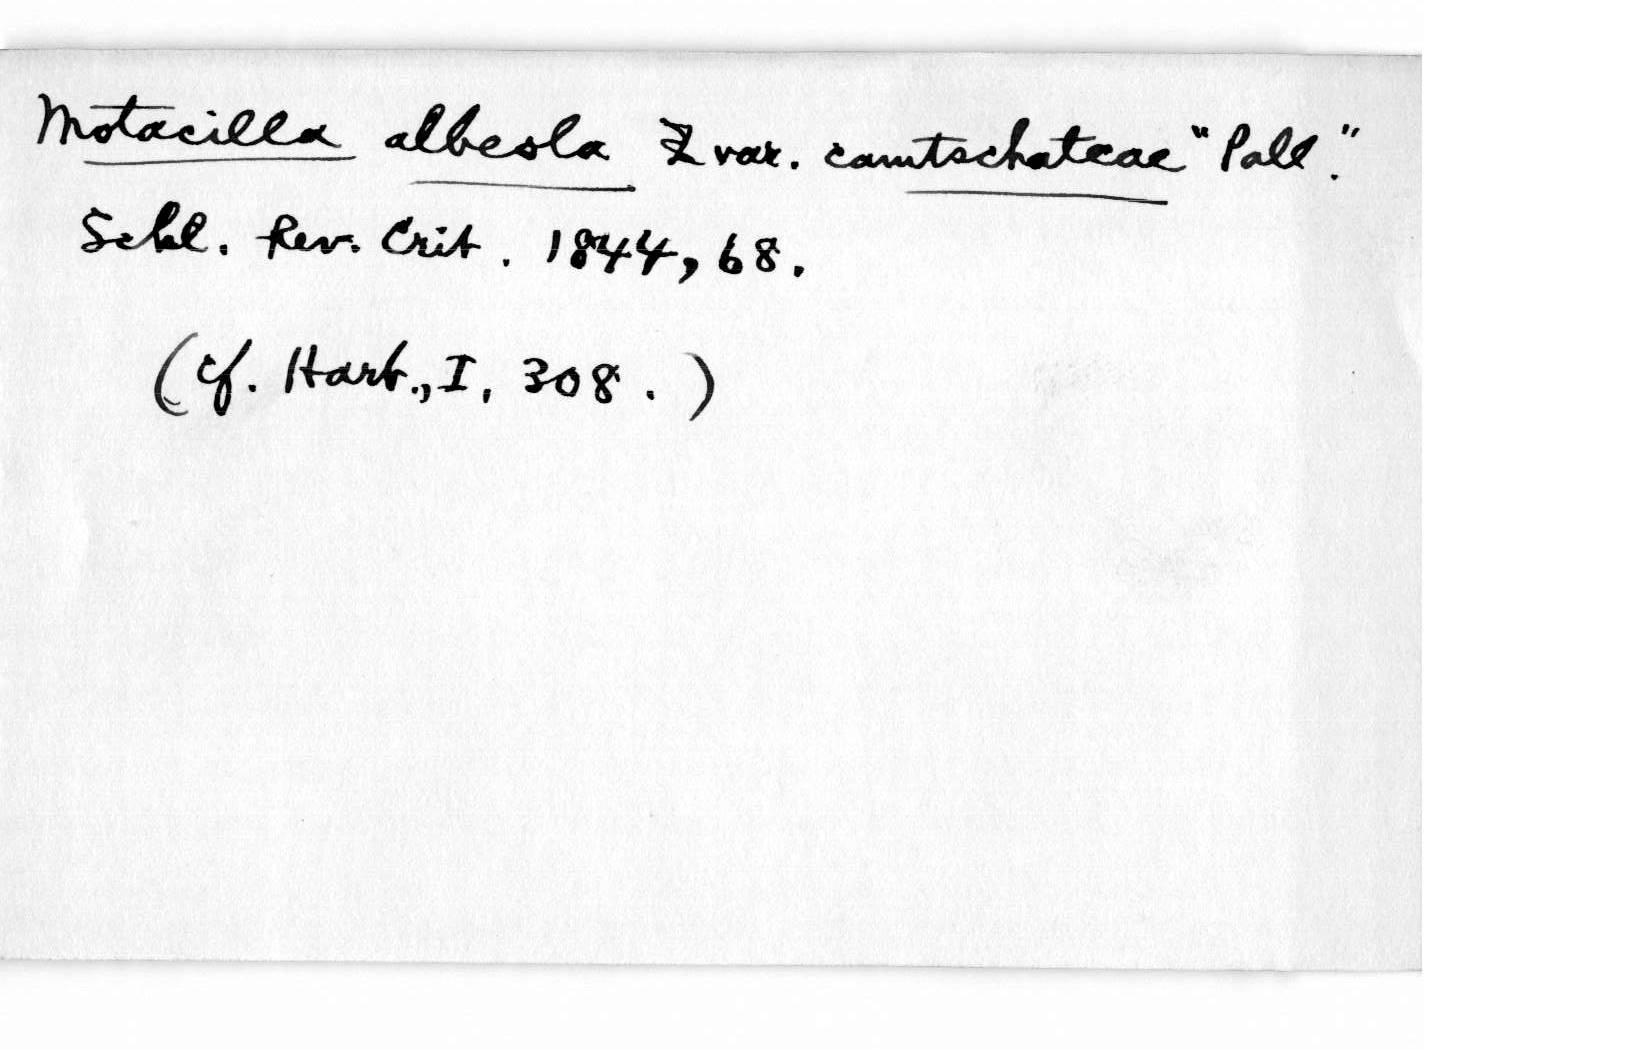 Motacilla albeola Z var. camtschatcae "Pall".
Schl. Rev. Crit. 1844, 68.
(cf. Hart., I, 308.)